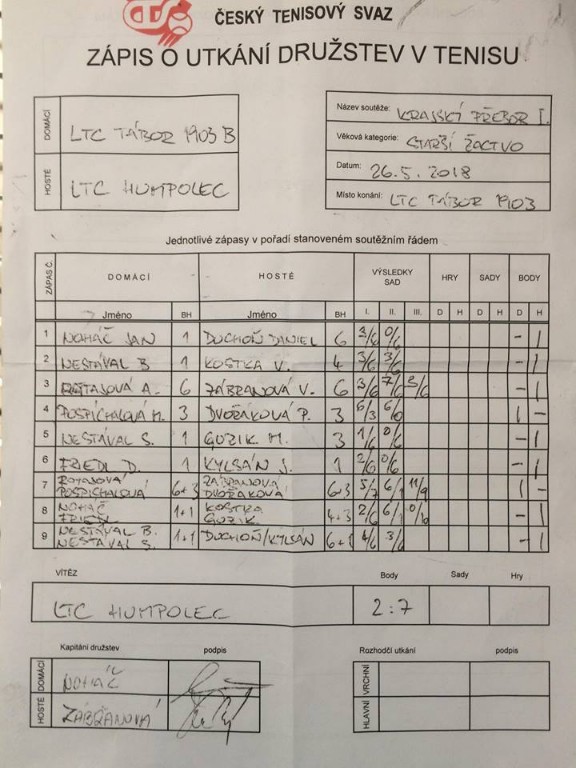 ČESKÝ TENISOVÝ SVAZ
ZÁPIS O UTKÁNÍ DRUŽSTEV V TENISU
DOMÁCÍ LTC TÁBOR 1903 B
HOSTÉ LTC HUMPOLEC
Název soutěže: KRAJSKÝ PŘEBOR I.
Věková kategorie: STARŠÍ ŽACTVO
Datum: 26.5.2018
Místo konání: LTC TÁBOR 1903
Jednotlivé zápasy v pořadí stanoveném soutěžním řádem
ZÁPAS Č. DOMÁCÍ HOSTÉ VÝSLEDKY SAD HRY SADY BODY
Jméno BH Jméno BH I. II. III. D H D H D H
1 NOHÁČ JAN 1 DUCHOŇ DANIEL 6 /6 0/6 - 1
2 NESTÁVAL B 1 KOSTKA V. 4 3/6 3/6 - 1
3 A. 6 ZÁBRANOVÁ V. 6 3/6 7/ 3/6 - 1
4 POSPÍCHALOVÁ M. 3 DVOŘÁKOVÁ P. 3 6/3 6/0 1 -
5 NESTÁVAL S. 1 GUZIK M. 3 1/6 0/6 - 1
6 FRIEDL D. 1 KYLSÁN J. 1 2/6 0/6 - 1
7 ROTAJOVÁ POSPÍCHALOVÁ 6+3 ZÁBRANOVÁ DVOŘÁKOVÁ 6+3 5/7 6/1 11/9 1 -
8 NOHÁČ FRIEDL 1+1 KOSTKA GUZIK 4+3 2/6 6/1 - 1
9 NESTÁVAL B. NESTÁVAL S. 1+1 DUCHOŇ/KYLSÁN 6+1 4/6 3/6 - 1
VÍTĚZ Body Sady Hry
LTC HUMPOLEC 2:7
Kapitáni družstev podpis Rozhodčí utkání podpis
DOMÁCÍ NOHÁČ VRCHNÍ
HOSTÉ ZÁBRANOVÁ HLAVNÍ